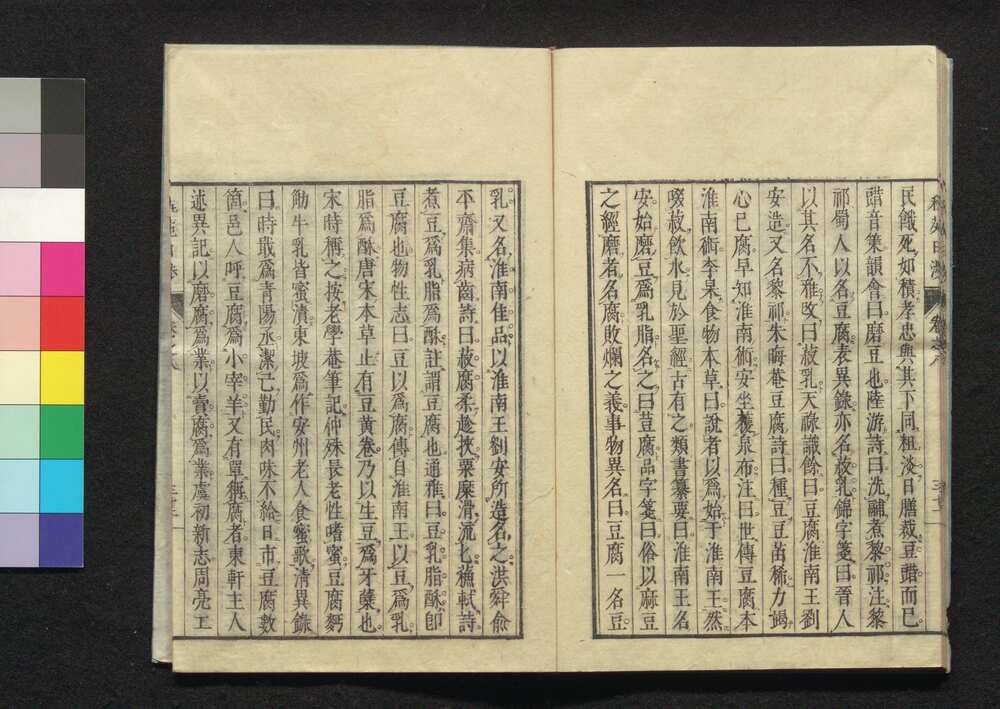 民餓死如積孝忠與其下同粗淡日膳裁豆䜺而已
䜺音策韻會曰磨豆也陸游詩曰洗䥶煮黎祁注黎
祁蜀人以名豆腐表異錄亦名菽乳錦字箋曰晉人
以其名不雅改曰菽乳天祿識餘曰豆腐淮南王劉
安造又名黎祁朱晦菴豆腐詩曰種豆豆苗稀力竭
心已腐早知淮南術安坐穫泉布注曰世傳豆腐本
淮南術李杲食物本草曰說者以爲始于淮南王然
啜菽飲水見於聖經古有之類書纂要曰淮南王名
安始磨豆爲乳脂名之曰荳腐品字箋曰俗以麻豆
之經磨者名腐敗爛之義事物異名曰豆腐一名豆
乳又名淮南佳品以淮南王劉安所造名之洪舜兪
平齋集病齒詩曰菽腐柔趁挾粟糜滑流匕蘓軾詩
煮豆爲乳脂爲酥註謂豆腐也通雅曰豆乳脂酥卽
豆腐也物性志曰豆以爲腐傳自淮南王以豆爲乳
脂爲酥唐宋本草止有豆黄卷乃以生豆爲牙蘖也
宋時稱之按老學菴筆記仲殊長老性嗜蜜豆腐麪
觔牛乳皆蜜漬東坡爲作安州老人食蜜歌淸異錄
曰時戢爲靑陽丞潔己勤民肉味不給日市豆腐數
箇邑人呼豆腐爲小宰羊又有單稱腐者東軒主人
述異記以磨腐爲業以賣腐爲業虞初新志周亮工